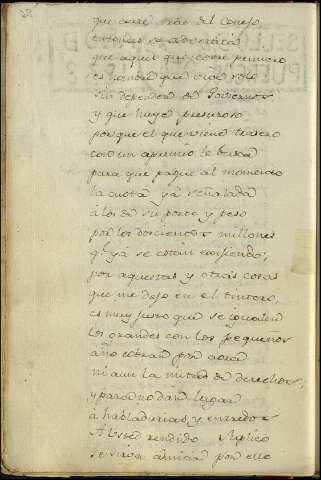 que corre tras del Conejo
entonces se advertirá
que aquel que corre primero
es hombre que vive solo
sin depender de Govierno
y que huye presuroso
porque el que viene tercero
con un apremio le busca
para que pague al momento
la cuota ya señalada
á los de su porte y peso
por los doscientos millones
q.e ya se están exijiendo;
por aquestas y otras cosas
que me dejo en el tintero,
es muy justo que se igualen
los grandes con los pequeños
no cobran por aora
ni aun la mitad de derechos;
y para no dar lugar
á habladurias, y enredos
A Usted rendido Suplico
se sirva admitir por ello